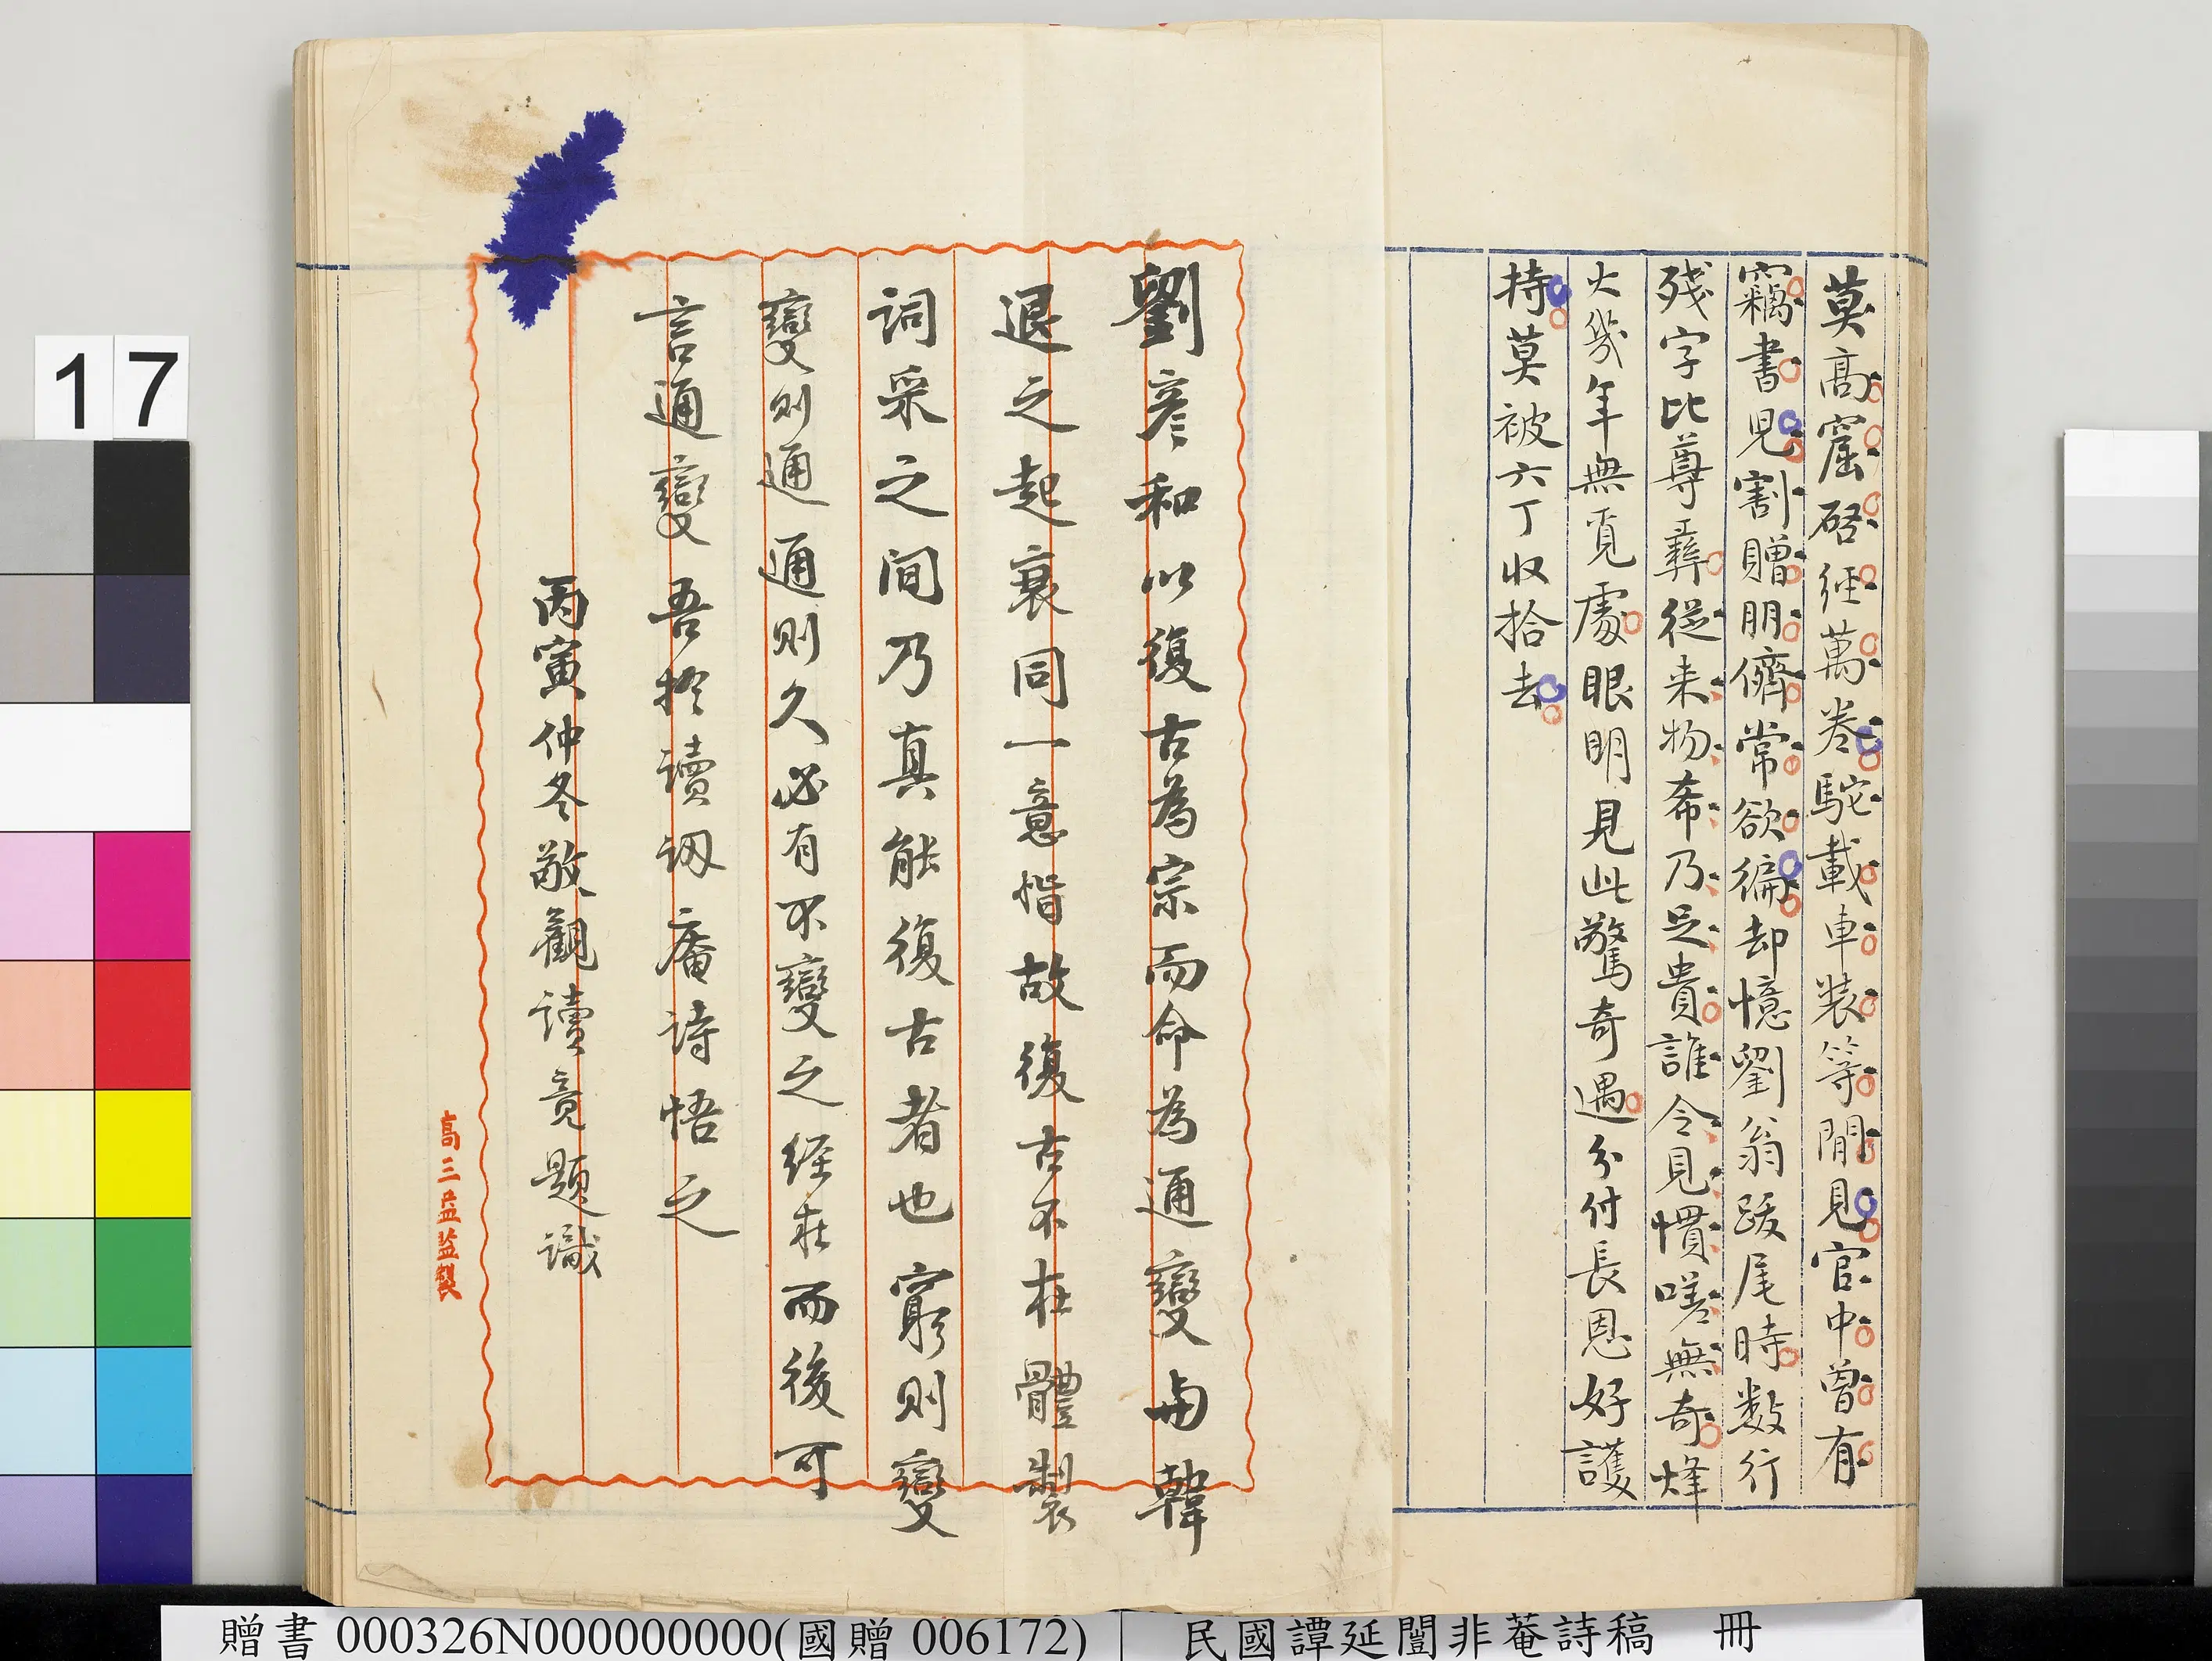 莫高窟啓經萬卷駝載車裝等閒見官中曾有
竊書兒割贈朋儕常欲徧却憶劉翁跋尾時數行
殘字比尊彝從来物希乃足貴誰令見慣嗟無奇烽
火幾年無覓處眼明見此驚奇遇分付長恩好護
持莫被六丁收拾去
劉彥和以復古為宗而命為通變與韓
退之起衰同一意恉故復古不在體製
詞采之間乃真能復古者也窮則變
變則通通則久必有不變之經在而後可
言通變吾於讀訒庵詩悟之
丙寅仲冬敬觀讀竟題識
高三益監製
17
贈書 000326N000000000(國贈 006172) 民國譚延闓非菴詩稿 冊